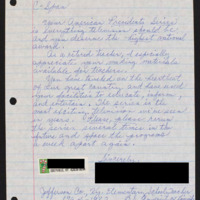 C-Span
Your American Presidents Series
is everything television should be
and you deserve the highest national
award.
As a retired teacher, I especially
appreciate your making materials
available for teachers.
You have touched on the best
of this great country, and have used
your facilities to educate, inform,
and entertain. The series is the
most exciting television we've seen
in years. Please, please rerun
the series several times in the
future and space the programs
a week apart again.
Sincerely,
Jefferson Co. Ky. Elementary School Teacher